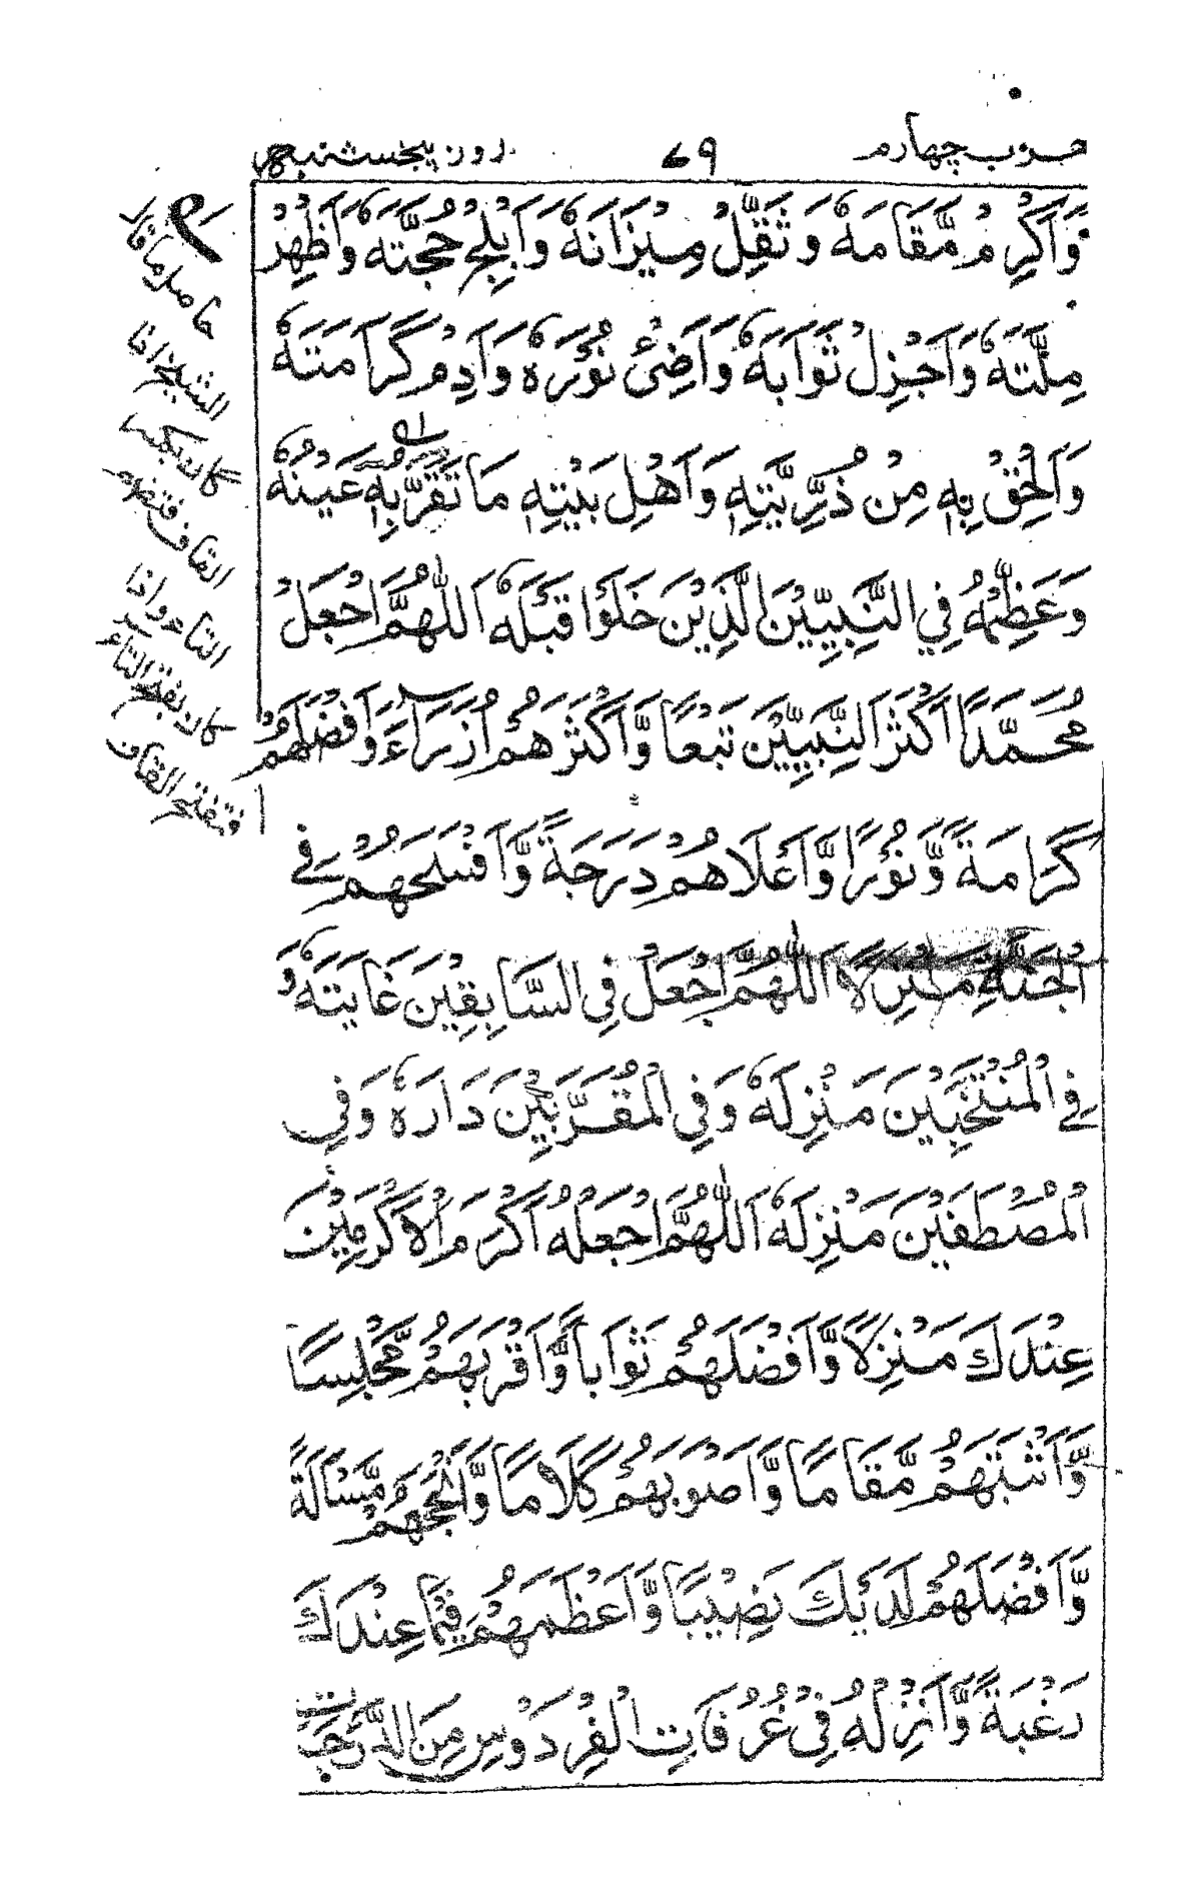 حزب چهارم ٧٩ روز پنجشنبه
وَاَكْرِمْ مَّقَامَهٗ وَثَقِّلْ مِيْزَانَهٗ وَاَبْلِجْ حُجَّتَهٗ وَاَظْهِرْ
مِلَّتَهٗ وَاَجْزِلْ ثَوَابَهٗ وَاَضِئْ نُوْرَهٗ وَاَدِمْ كَرَامَتَهٗ
وَاَلْحِقْ بِهٖ مِنْ ذُرِّيَّتِهٖ وَاَهْلِ بَيْتِهٖ مَا تَقَرُّ بِهٖ عَيْنُهٗ
وَعَظِّمْهُ فِي النَّبِيِّيْنَ الَّذِيْنَ خَلَوْا قَبْلَهٗ اَللّٰهُمَّ اجْعَلْ
مُحَمَّدًا اَكْثَرَ النَّبِيِّيْنَ تَبَعًا وَّاَكْثَرَهُمْ اُزَرَآءَ وَاَفْضَلَهُمْ
كَرَامَةً وَّنُوْرًا وَّاَعْلَاهُمْ دَرَجَةً وَّاَفْسَحَهُمْ فِے
الْجَنَّةِ مَنْزِلًا اَللّٰهُمَّ اجْعَلْ فِي السَّابِقِيْنَ غَايَتَهٗ وَ
فِے الْمُنْتَخَبِيْنَ مَنْزِلَهٗ وَفِي الْمُقَرَّبِيْنَ دَارَهٗ وَفِي
الْمُصْطَفَيْنَ مَنْزِلَهٗ اَللّٰهُمَّ اجْعَلْهُ اَكْرَمَ الْاَكْرَمِيْنَ
عِنْدَكَ مَنْزِلًا وَّاَفْضَلَهُمْ ثَوَابًا وَّاَقْرَبَهُمْ مَّجْلِسًا
وَّاَثْبَتَهُمْ مَّقَامًا وَّاَصْوَبَهُمْ كَلَامًا وَّاَنْجَحَهُمْ مَّسْاَلَةً
وَّاَفْضَلَهُمْ لَدَيْكَ نَصِيْبًا وَّاَعْظَمَهُمْ فِيْمَا عِنْدَكَ
رَغْبَةً وَّاَنْزِلْهُ فِيْ غُرُفَاتِ الْفِرْدَوْسِ مِنَ الدَّرَجَاتِ
حاصل ما قال
الشيخ اذا
كان بكسر
القاف فتضم
التاء واذا
كان بفتح التاء
فتفتح القاف